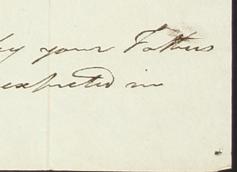 your Fathers
expected in